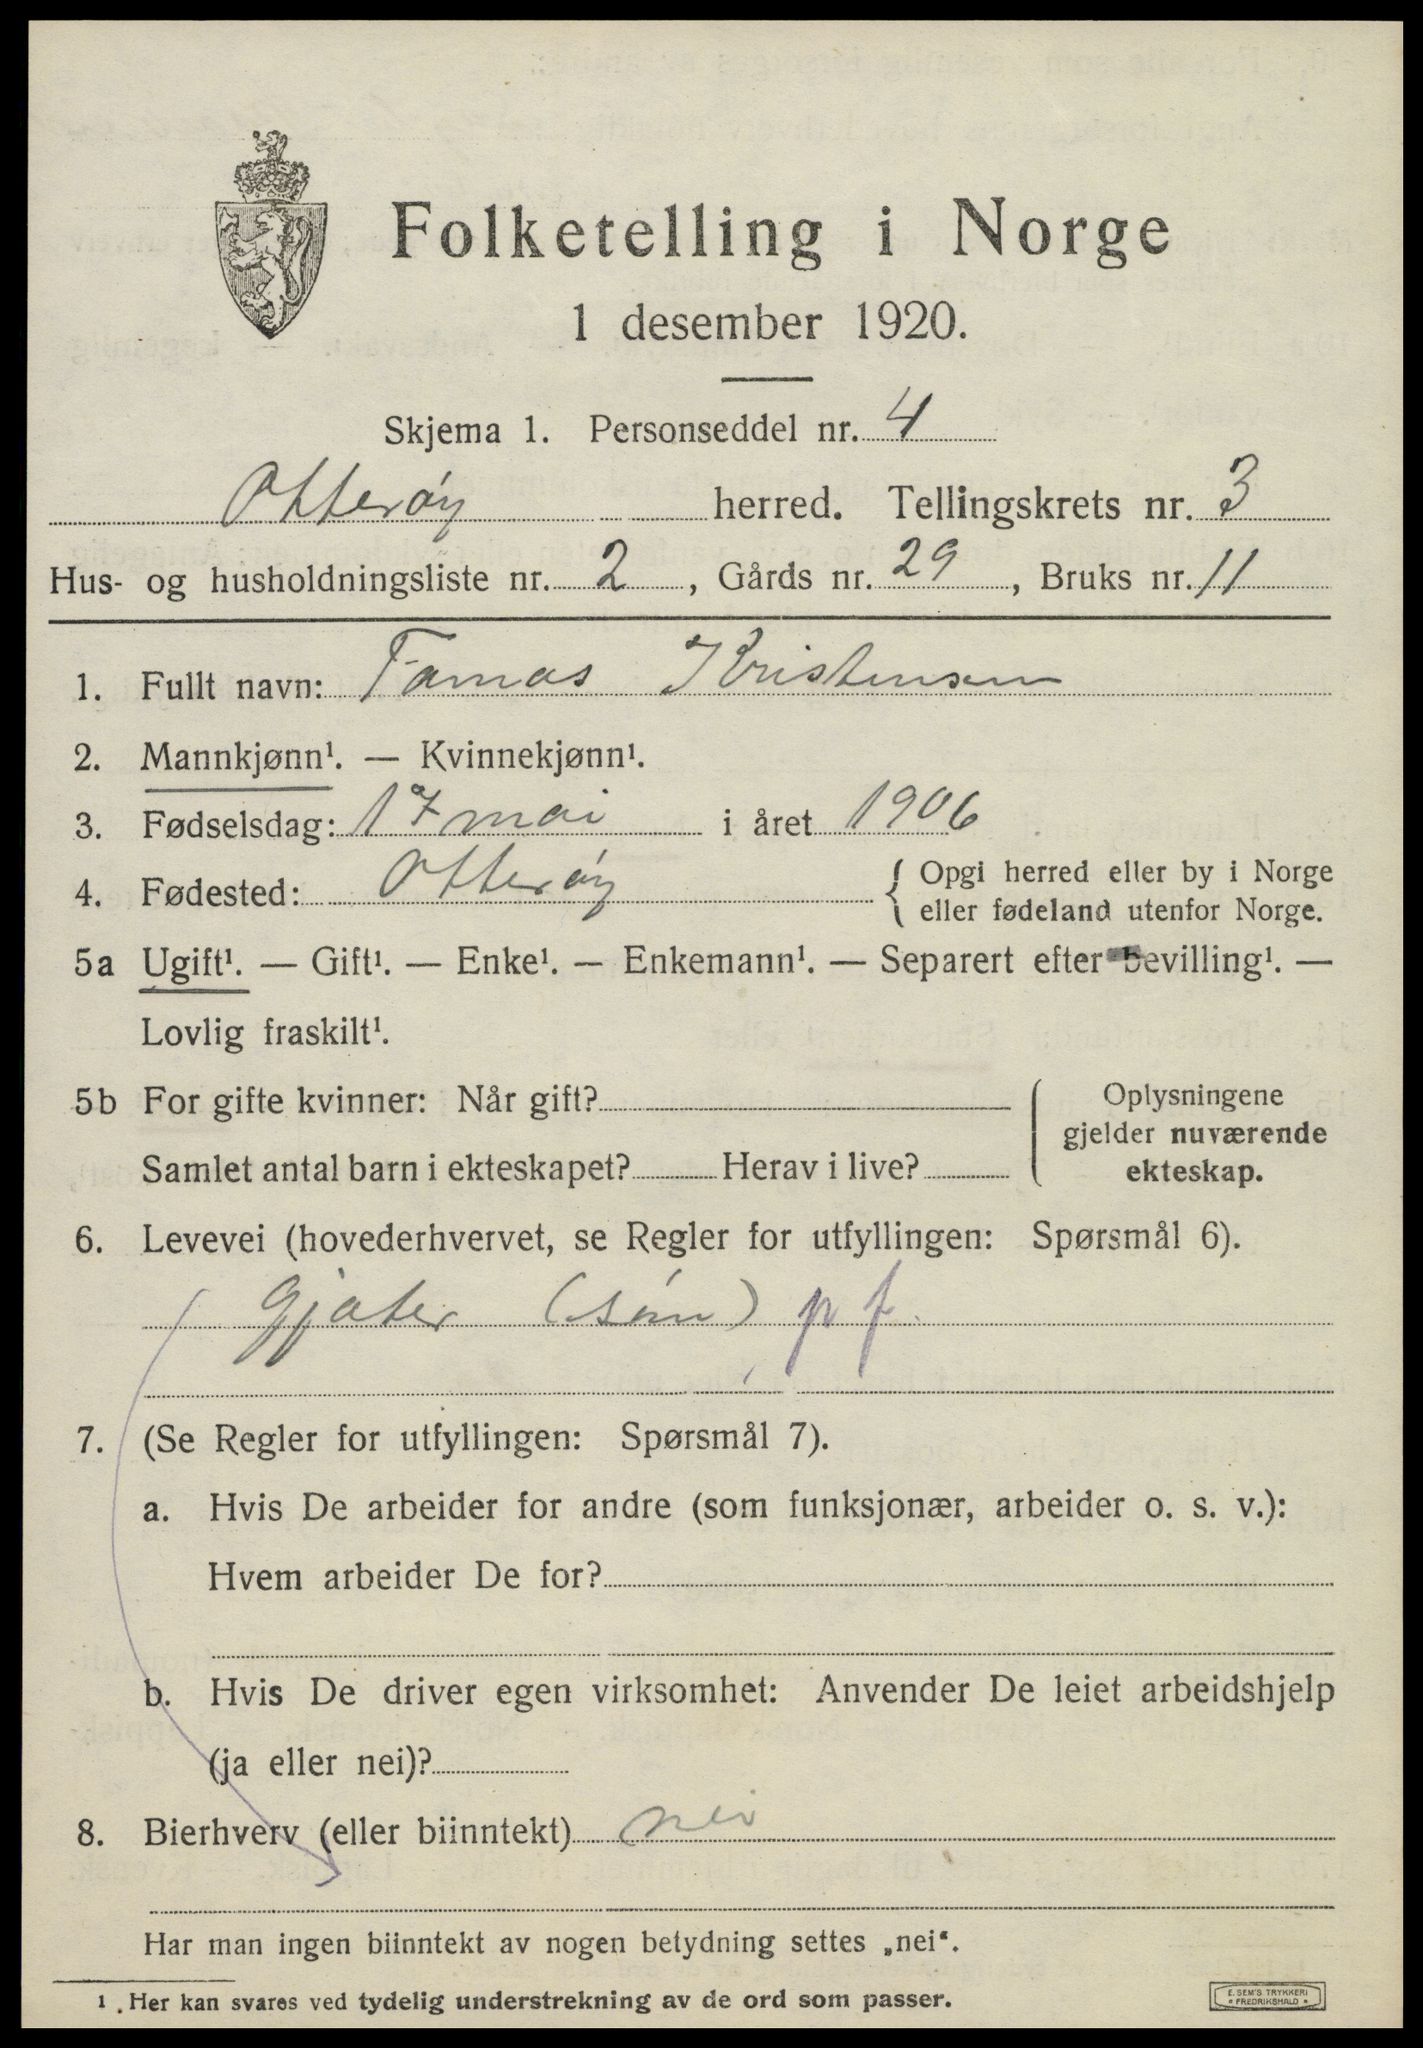 Folketelling i Norge
1 desember 1920.
Skjema 1. Personseddel nr. 4
Otterøy herred. Tellingskrets nr. 3
Hus- og husholdningsliste nr. 2, Gårds nr. 29, Bruks nr. 11
1. Fullt navn: Tamas Kristensen
2. Mannkjønn¹. — Kvinnekjønn¹.
3. Fødselsdag: 17 mai i året 1906
4. Fødested: Otterøy { Opgi herred eller by i Norge
eller fødeland utenfor Norge.
5a Ugift¹. — Gift¹. — Enke¹. — Enkemann¹. — Separert efter bevilling¹. —
Lovlig fraskilt¹.
5b For gifte kvinner: Når gift?
Samlet antal barn i ekteskapet? Herav i live?
Oplysningene
gjelder nuværende
ekteskap.
6. Levevei (hovederhvervet, se Regler for utfyllingen: Spørsmål 6).
Gjæter (søn) p f.
7. (Se Regler for utfyllingen: Spørsmål 7).
a. Hvis De arbeider for andre (som funksjonær, arbeider o. s. v.):
Hvem arbeider De for?
b. Hvis De driver egen virksomhet: Anvender De leiet arbeidshjelp
(ja eller nei)?
8. Bierhverv (eller biinntekt) nei
Har man ingen biinntekt av nogen betydning settes „nei“.
1 Her kan svares ved tydelig understrekning av de ord som passer.
E. SEM'S TRYKKERI
* FREDRIKSHALD *